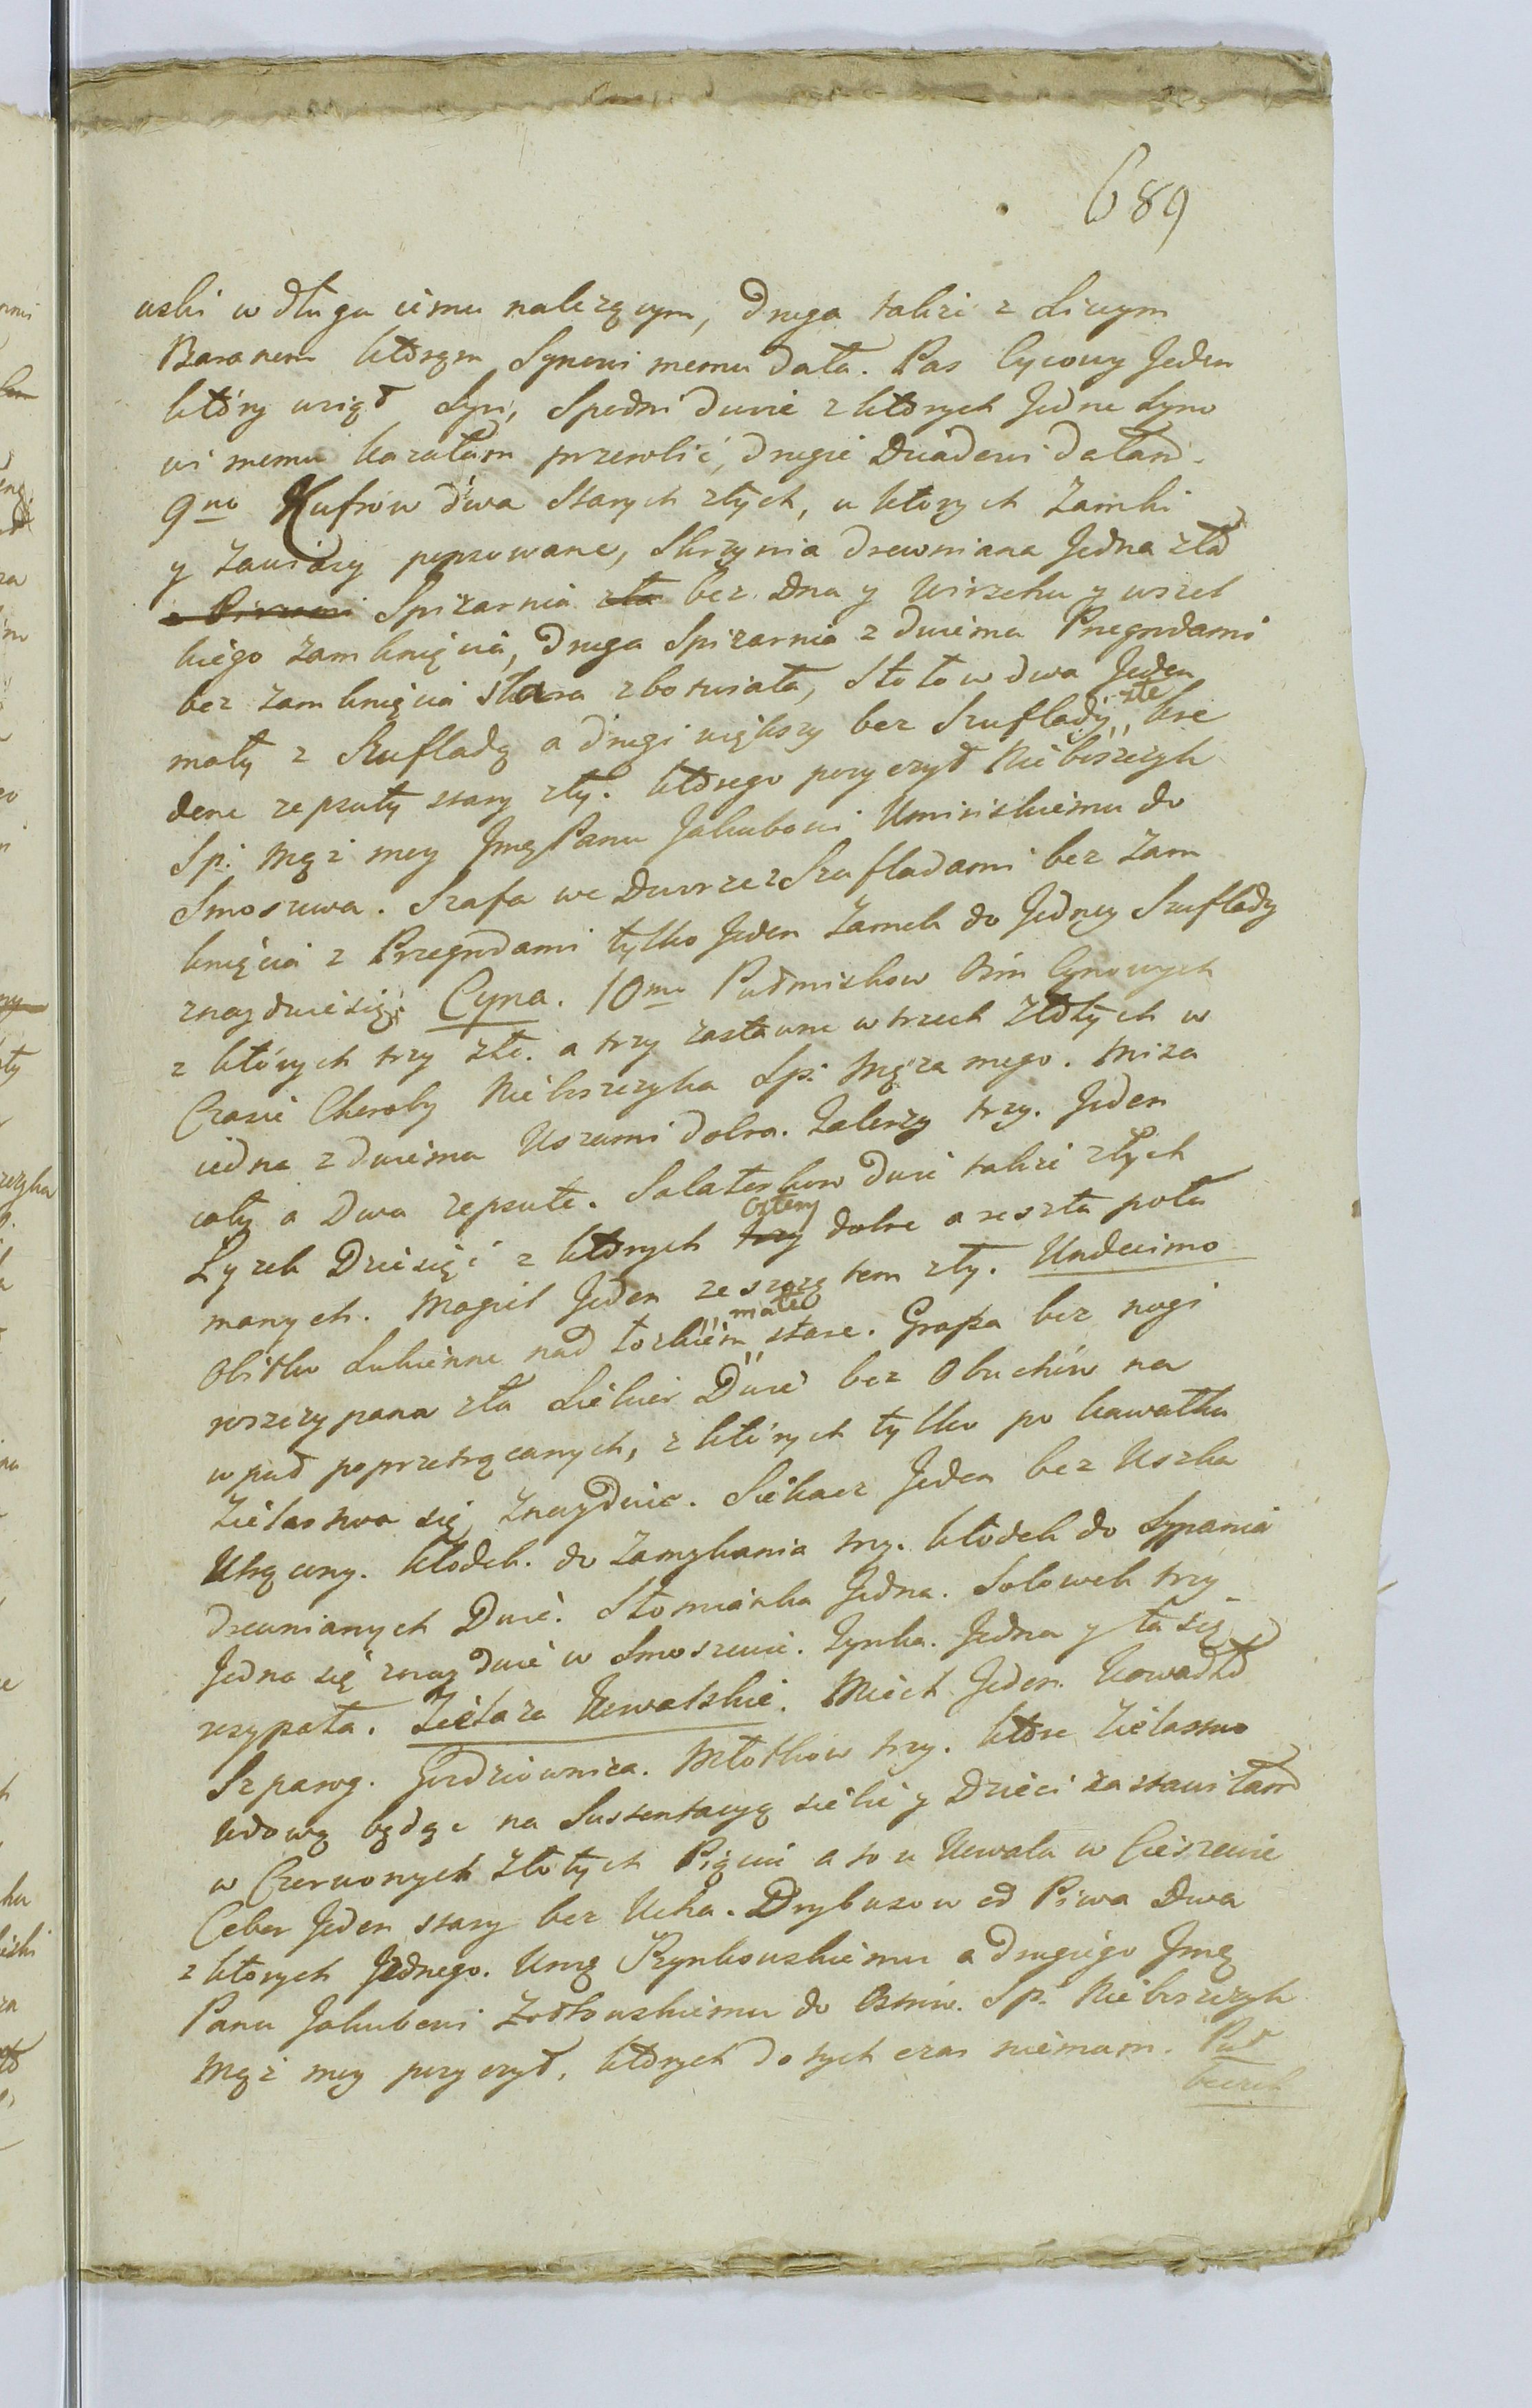 689
uski w długu iemu należącym, druga także z Siwym
Baranem którąm Synowi memu dała. Pas lycowy Jeden
który wziął Syn, Spodni dwie z których Jedne Syno
wi memu kazałam przerobić, drugie Dziadowi dałam.
9no Kufrów dwa starych złych, u których Zamki
y Zawiasy popsowane, Skrzynia drewniana Jedna zła
Spiżarnia zła bez Dna y Wirzchu y wszel
kiego Zamknięcia, druga Spiżarnia z dwiema Przegrodami
bez zamknięcia stara zbotwiała, Stołow dwa Jeden
mały z Szufladą a drugi większy bez Szuflady, złe kre
dens zepsuty stary zły. którego pożyczył Nieboszczyk
Sp: Mąż moy Jmę Panu Jakubowi Uminskiemu do
Smoszewa. Szafa we Dworze z Szufladami bez Zam
knięcia z Przegrodami tylko Jeden Zamek do Jedney Szuflady
znayduie się. Cyna. 10mo Pułmiskow Ośm Cynowych
z których trzy złe. a trzy zastawne w trzech Złotych w
Czasie Choroby Nieboszczyka Sp: Męża mego. Misa
iedna z dwiema Uszami dobra. Talerzy trzy. Jeden
cały a Dwa zepsute. Salaterkow dwie także złych
Łyzek Dziesięć z których trzy cztery dobre a reszta poła
manych. Magiel Jeden ze sprzętem zły. Undecimo
Obitke Sukienne nad łozkiem małe stare. Grapa bez nogi
roszczypana zła Siekier Dwie bez Obuchów na
wpuł poprzetrącanych, z których tylko po kawałku
Zielastwa się Znayduie. Siekacz Jeden bez Uszka
Utrącony. kłodek. do Zamykania trzy. kłodek do Sypania
drewnianych Dwie. Słomianka Jedna. Solowek trzy
Jedna się znayduie w Smoszewie. Tynka. Jedna y ta się
rozypała. Zielaza Kowalskie. Miech Jeden. Kowadło
Szparog. Gozdziownica. Młotkow trzy. które Zielastwo
Wdową będąc na Sustentacyą siebie y Dzieci zastawiłam
w Czerwonych Złotych Pięciu a to u Kowala w Cieszewie
Ceber Jeden stary bez Ucha. Drybusow od Piwa Dwa
z ktorych Jednego. Urną Rynkowskiemu a drugiego Jmę
Panu Jakubowi Zołtowskiemu do Sp: Nieboszczyk
Mąż moy pożyczył, których dotych czas niemam. Puł
beczek